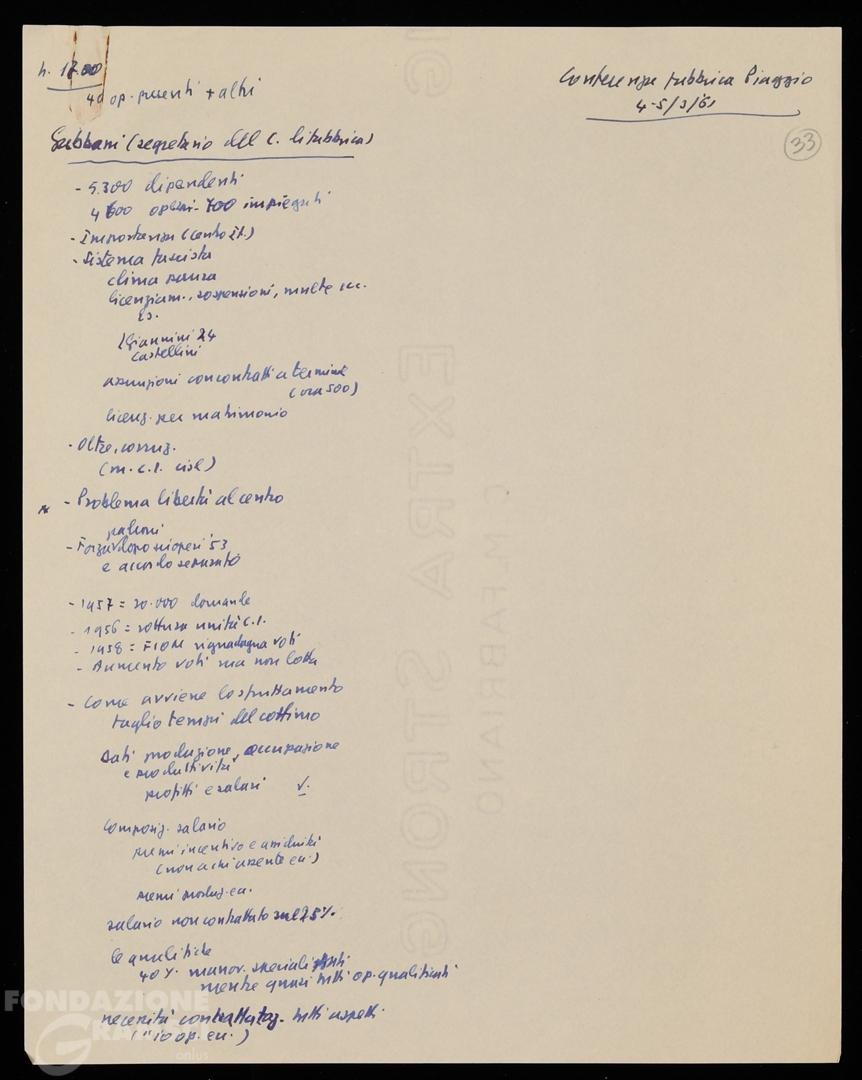 h. 17.00
40 op. presenti + altri
Conferenza fabbrica Piaggio
4-5/3/61
33
(segretario del C. di fabbrica)
- 5.300 dipendenti
4600 operai - 700 impiegati
- Importanza (centro It.)
- Sistema fascista
clima paura
licenziam., sospensioni, multe ecc.
es.
Giannini 24
Castellini
assunzioni con contratti a termine
(ora 500)
licenz. per matrimonio
- Oltre, corruz.
(m. c.I. cisl)
- Problema libertà al centro
- Forza padroni dopo scioperi '53
e accordo separato
- 1957 = 20.000 domande
- 1956 = rottura unità C.I.
- 1958 = FIOM riguadagna voti
- Aumento voti ma non lotta
- Come avviene lo sfruttamento
taglio tempi del cottimo
Dati produzione, occupazione
e produttività
profitti e salari v.
Composiz. salario
premi incentivo e assiduità
(non a chi assente ecc.)
premi produz. ecc.
salario non contrattato sul 25%
le qualifiche
40% manov. specializzati
mentre quasi tutti op. qualificati
necessità contrattaz. tutti aspetti
op. ecc.)
EXTRA STRONG
C.M. FABRIANO
FONDAZIONE
GRAMSCI
onlus